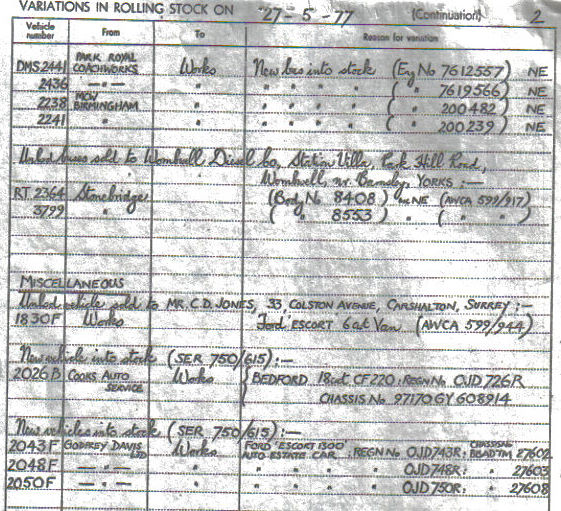 VARIATIONS IN ROLLING STOCK ON 27-5-77 (Continuation) 2
Vehicle number From To Reason for variation
DMS2441 PARK ROYAL COACHWORKS Works New bus into stock (Eng No 7612557) NE
2436 —"— " " " " " ( " 7619566) NE
2238 MCW BIRMINGHAM " " " " " ( " 200482) NE
2241 " " " " " " ( " 200239) NE
Unlicd buses sold to Wombwell Diesel Co, Station Villa, Park Hill Road,
Wombwell, nr. Barnsley, YORKS :—
RT 2364 Stonebridge (Body No 8408) NE (AWCA 599/917)
3799 " ( " 8553) " ( " " )
MISCELLANEOUS
Unlicd vehicle sold to MR. C.D. JONES, 33, COLSTON AVENUE, CARSHALTON, SURREY :—
1830F Works Ford ESCORT 6cwt Van (AWCA 599/944)
New vehicle into stock (SER 750/615) :—
2026B COOKS AUTO SERVICE Works BEDFORD 18cwt CF220 : REGN No OJD 726R
CHASSIS No 97170 GY 608914
New vehicles into stock (SER 750/615) :—
2043F GODFREY DAVIS LTD Works FORD 'ESCORT 1300' AUTO ESTATE CAR : REGN No OJD743R : CHASSIS No BGADTM 27602
2048F —"— " " " " " OJD748R : " 27603
2050F —"— " " " " " OJD750R : " 27608